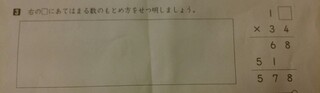 3 右の□にあてはまる数のもとめ方をせつ明しましょう。
1□
×34
68
51
578